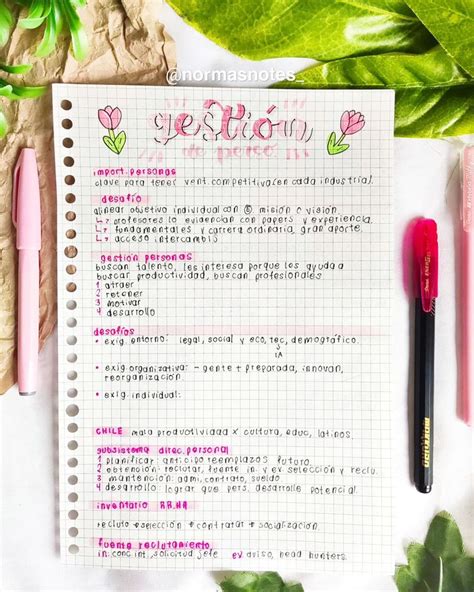 @normasnotes_
gestión
de perso
import. personas
clave para tener vent. competitiva (en cada industria).
desafío
alinear objetivo individual con misión o visión
↳ profesores lo evidencian con papers y experiencia.
↳ fundamentales y carrera ordinaria, gran aporte.
↳ acceso intercambio
gestión personas
buscan talento, les interesa porque les ayuda a
buscar productividad, buscan profesionales
1 atraer
2 retener
3 motivar
4 desarrollo
desafíos
• exig. entorno: legal, social y eco, tec, demográfico.
IA
• exig. organizativa: - gente + preparada, innovan,
reorganización.
• exig. individual:
CHILE mala productividad x cultura, educ, latinos.
subsistema direc. personal
1 planificar: anticipo reemplazos futuro.
2 obtención: reclutar, fuente in. y ex selección y reclu.
3 mantención: adm, contrato, sueldo
4 desarrollo lograr que pers. desarrolle potencial.
inventario RR.HH
recluto + selección + contratar + socialización
fuente reclutamiento
in: conc. int, solicitud jefe ex: aviso, head hunters.